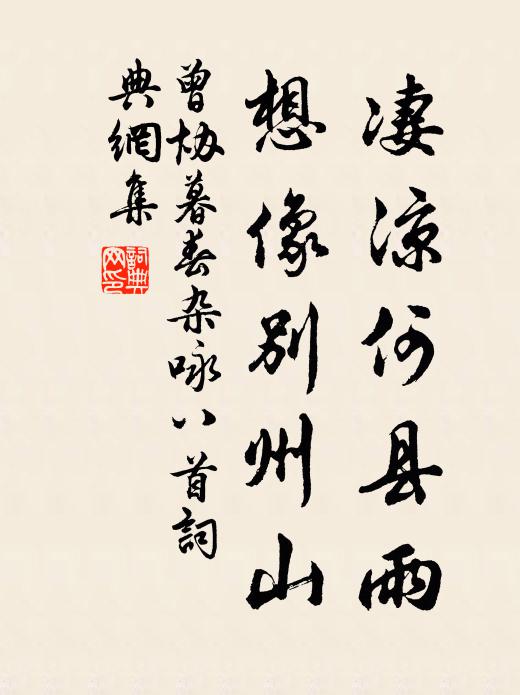 凄凉何县雨
想像别州山
曾协暮春杂咏八首詞
典網集
詞典
网印